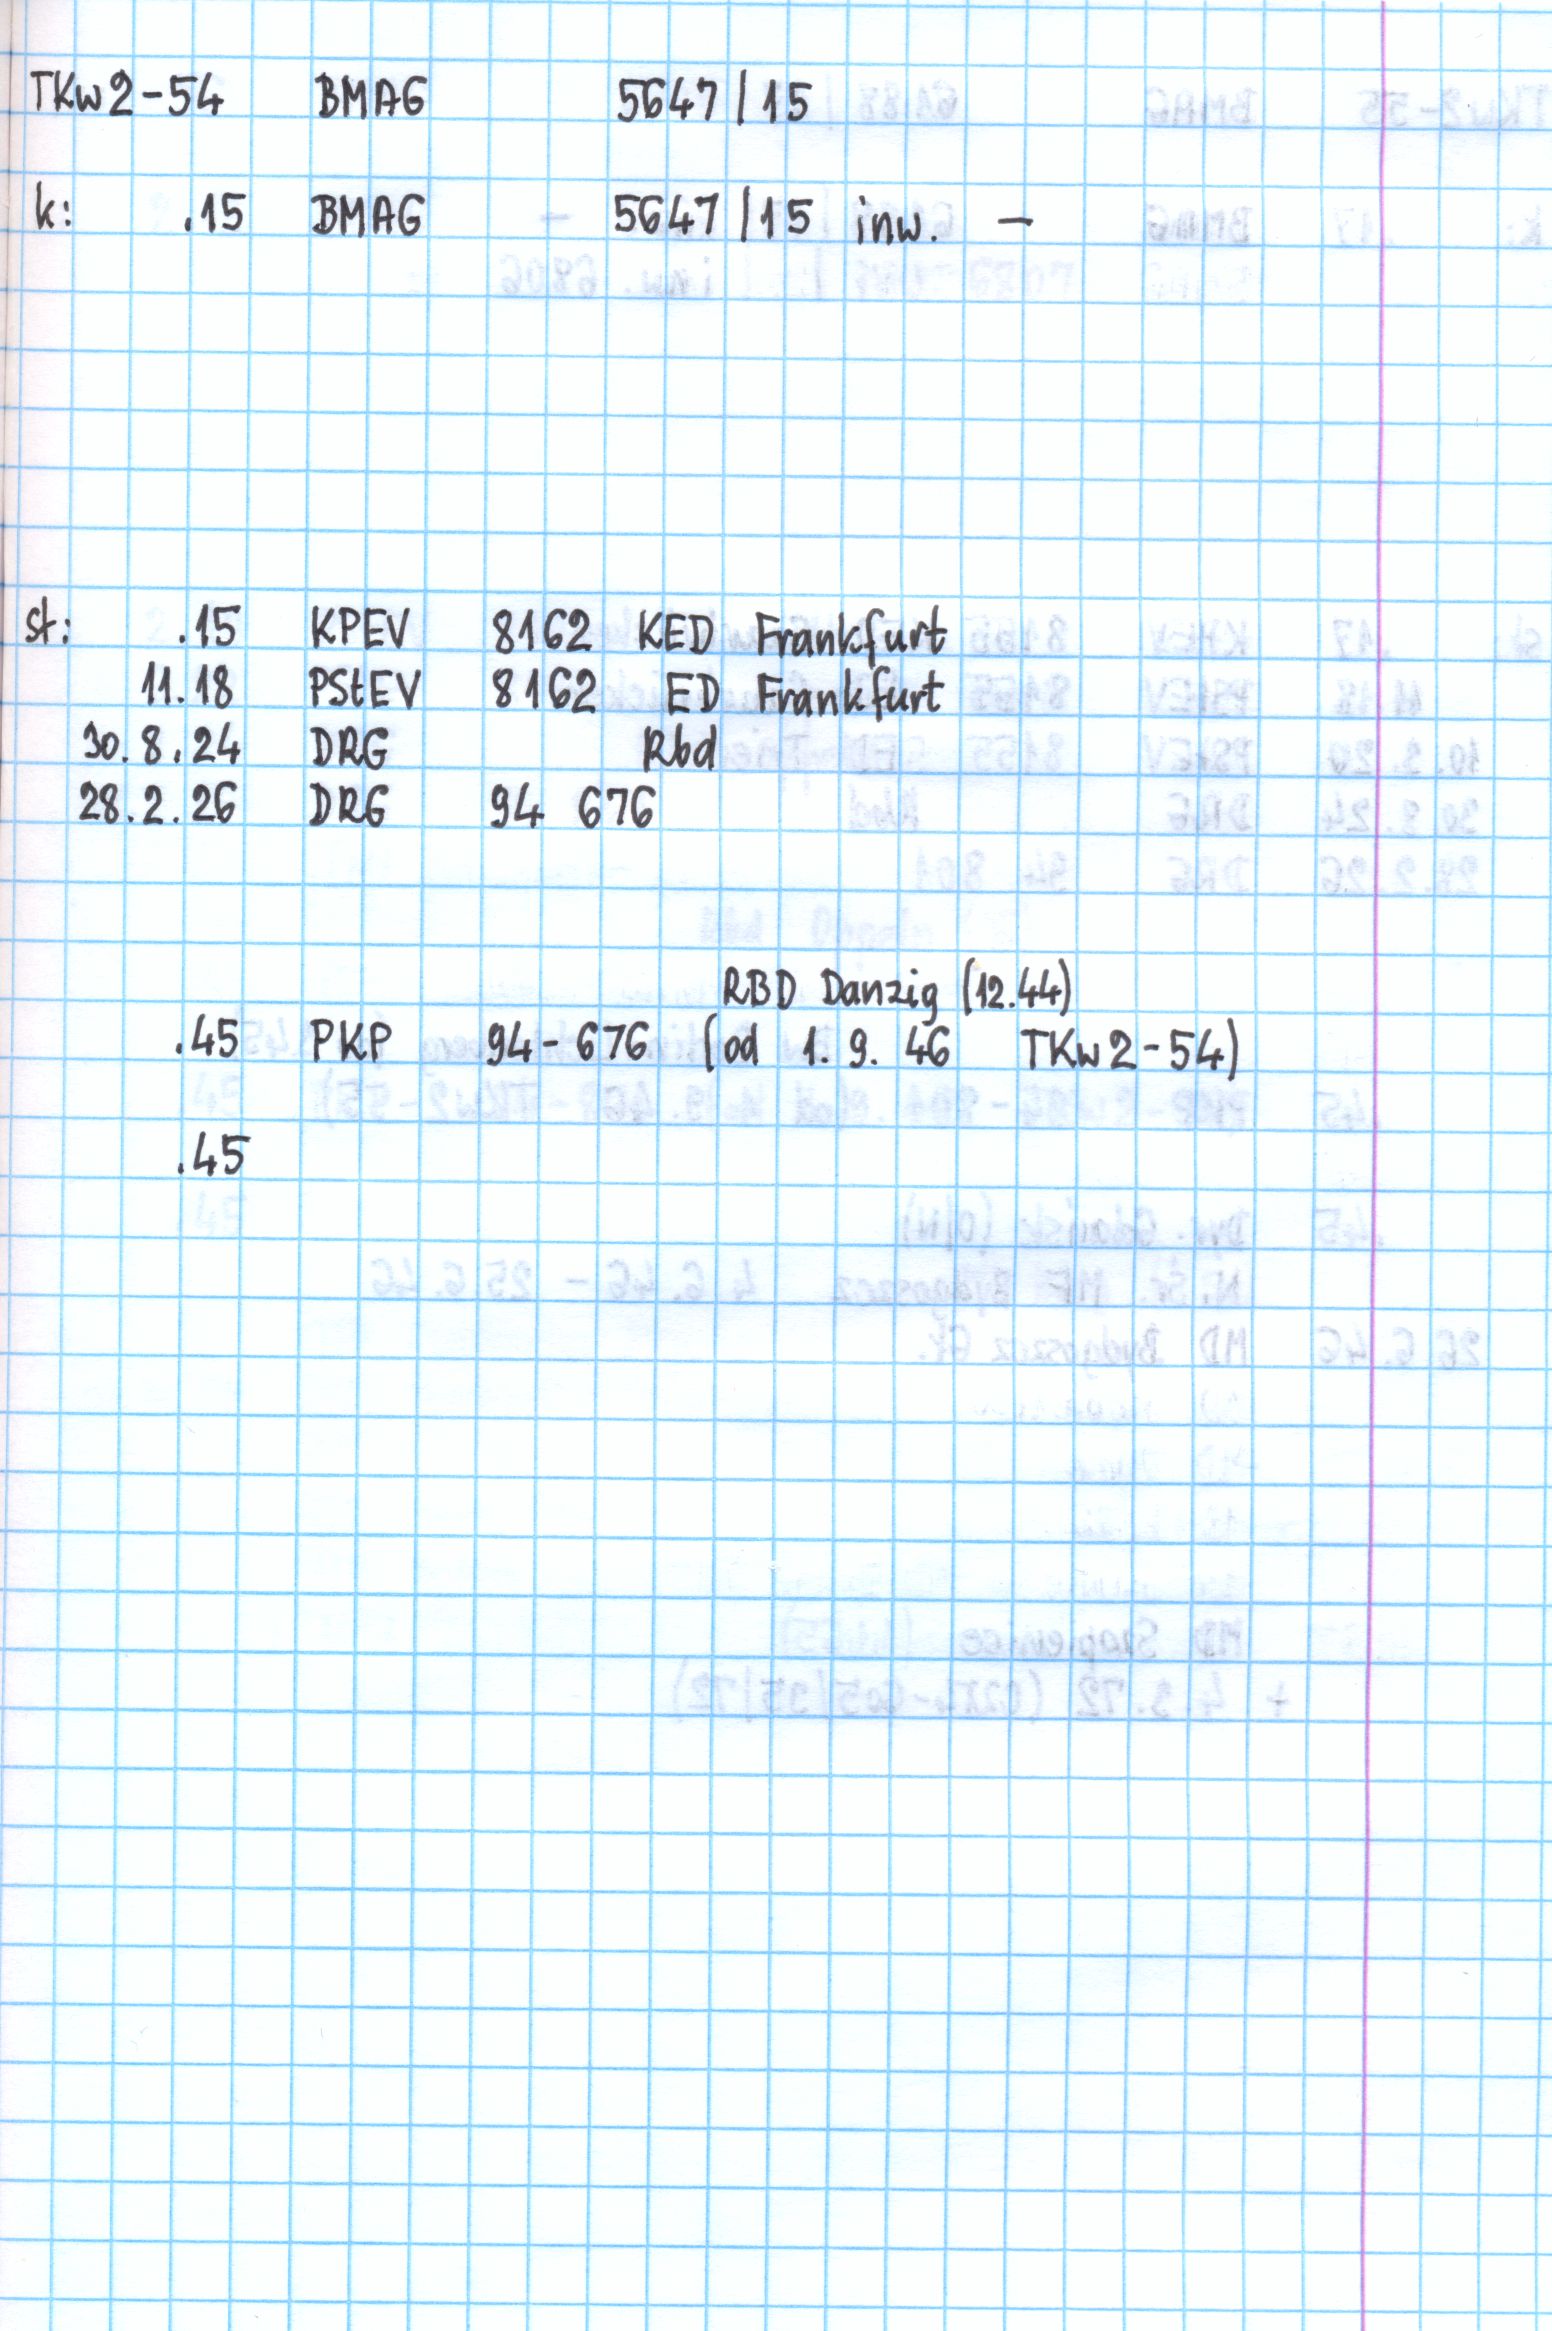 TKw2-54 BMAG 5647/15
k: .15 BMAG 5647/15 inw. -
st: .15 KPEV 8162 KED Frankfurt
11.18 PStEV 8162 ED Frankfurt
30.8.24 DRG Rbd
28.2.26 DRG 94 676
RBD Danzig (12.44)
.45 PKP 94-676 (od 1.9.46 TKw2-54)
.45